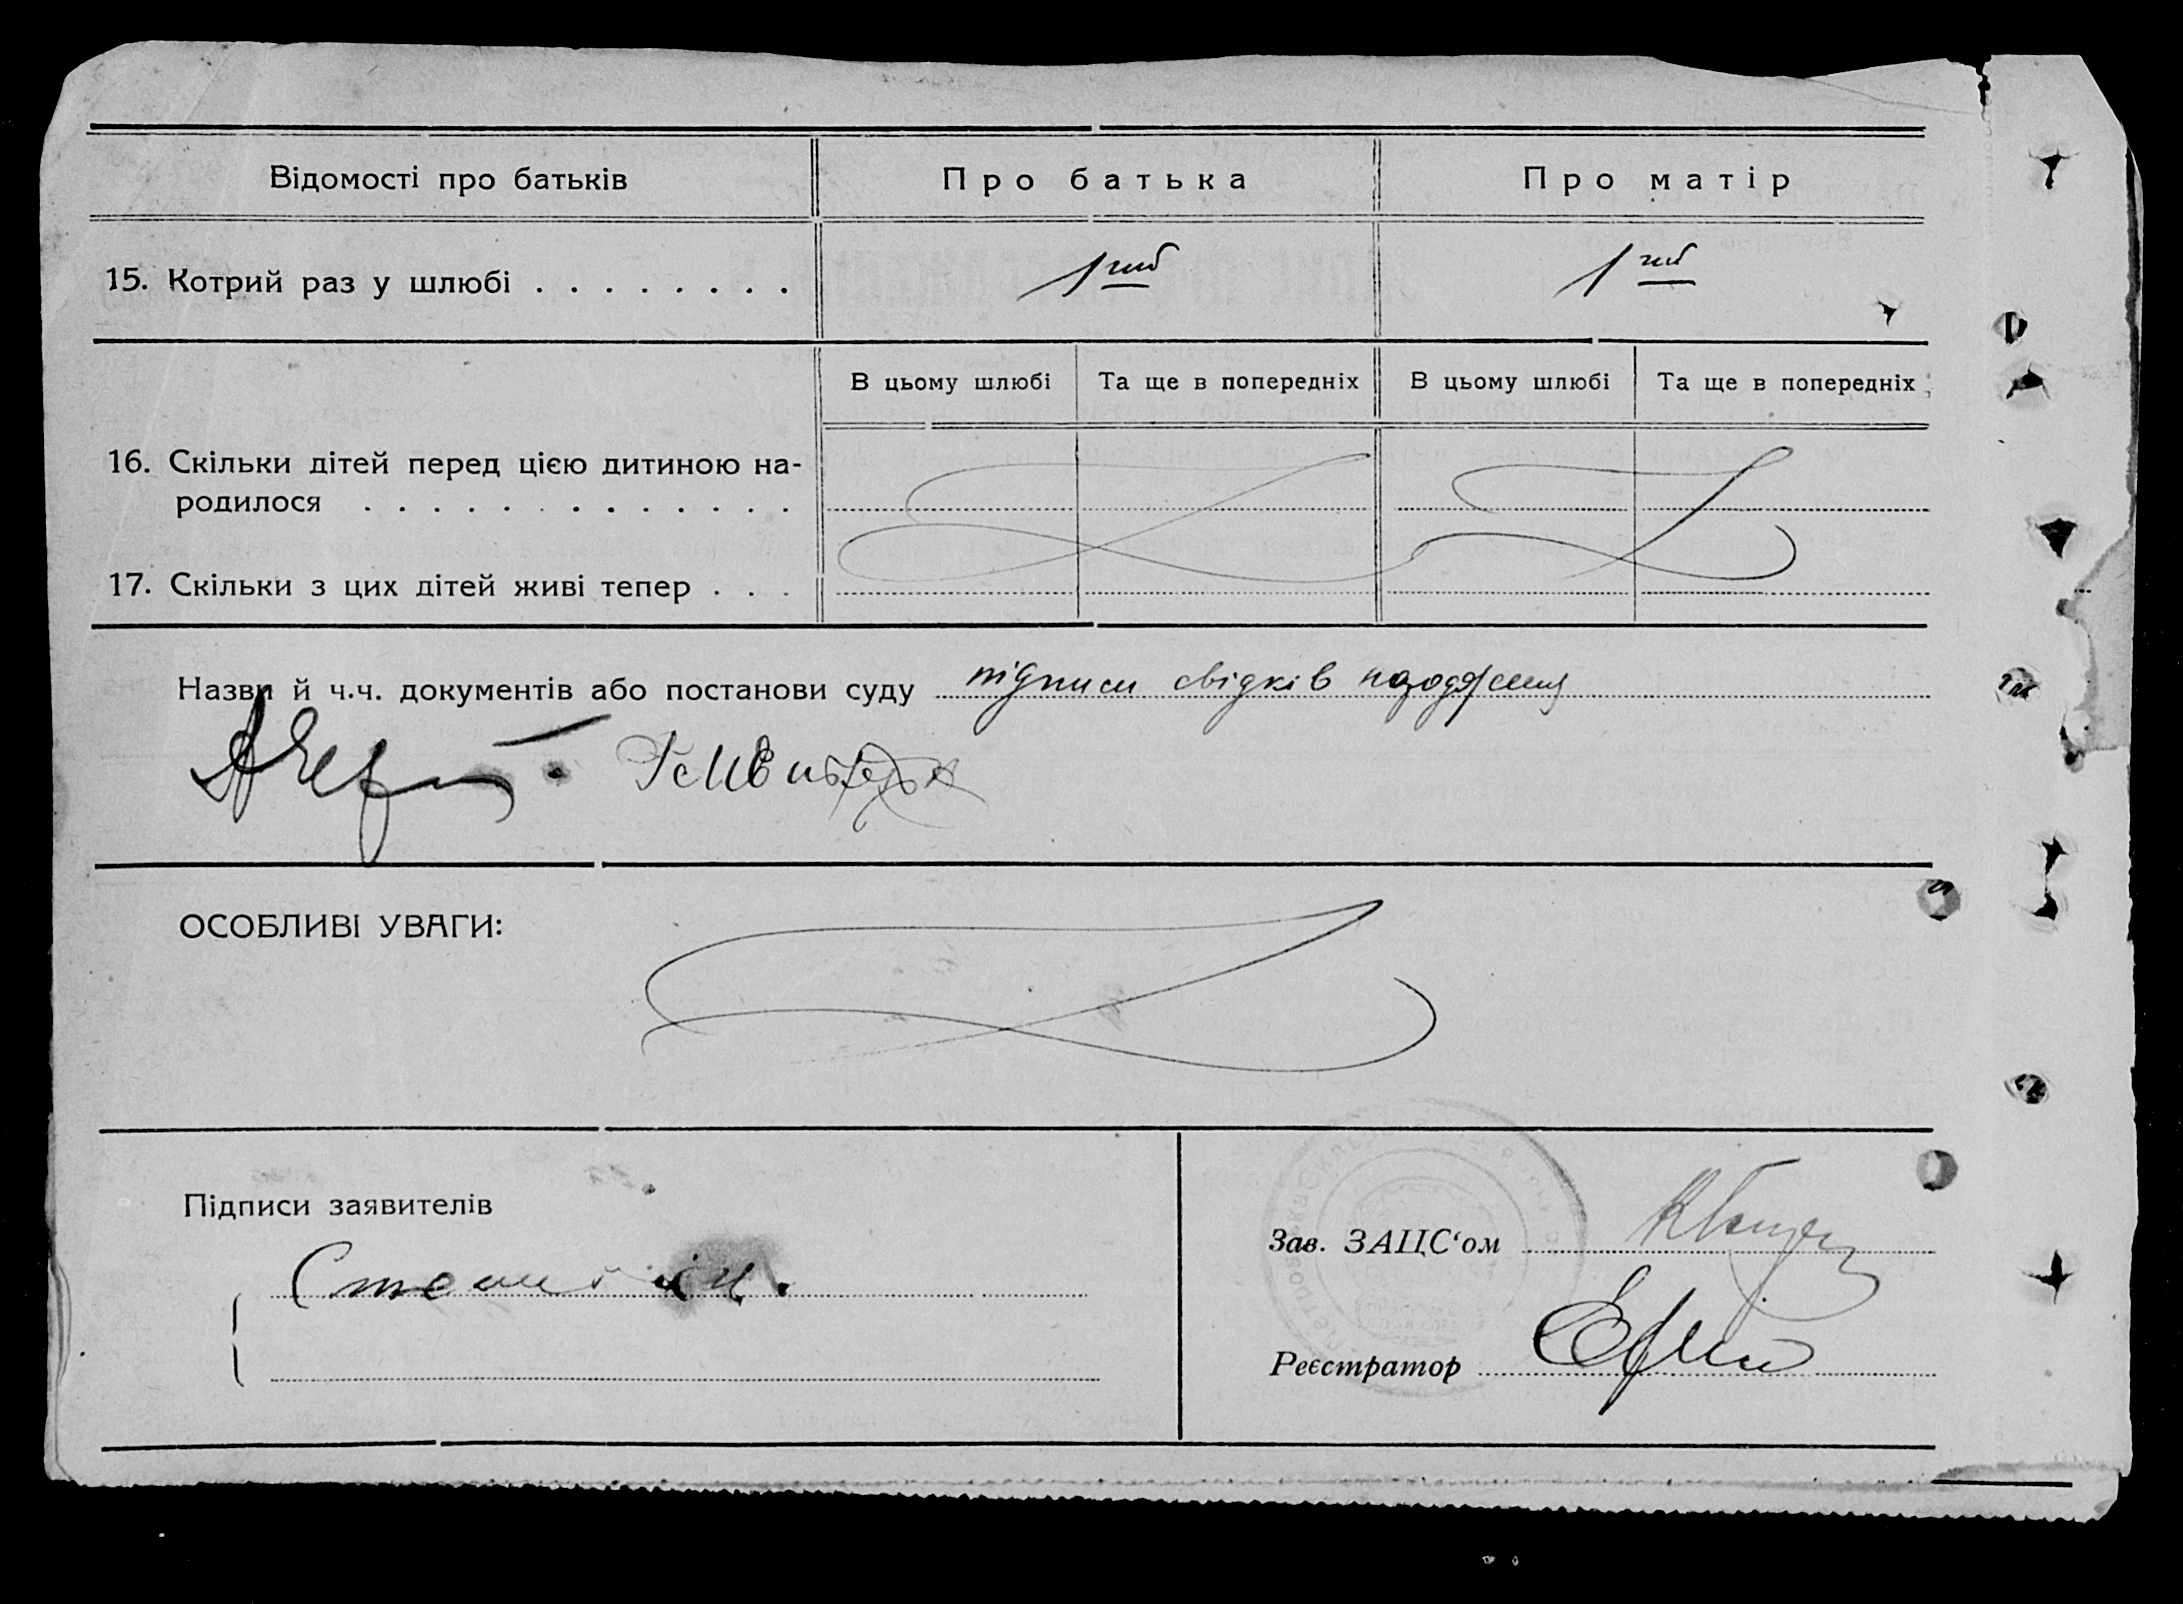 Відомості про батьків
Про батька
Про матір
15. Котрий раз у шлюбі . . . . . . . .
1
1
В цьому шлюбі
Та ще в попередніх
В цьому шлюбі
Та ще в попередніх
16. Скільки дітей перед цією дитиною на-
родилося . . . . . . . . . . . . .
17. Скільки з цих дітей живі тепер . . .
Назви й ч.ч. документів або постанови суду підписи свідків
ОСОБЛИВІ УВАГИ:
Підписи заявителів
Зав. ЗАЦС'ом
Реєстратор